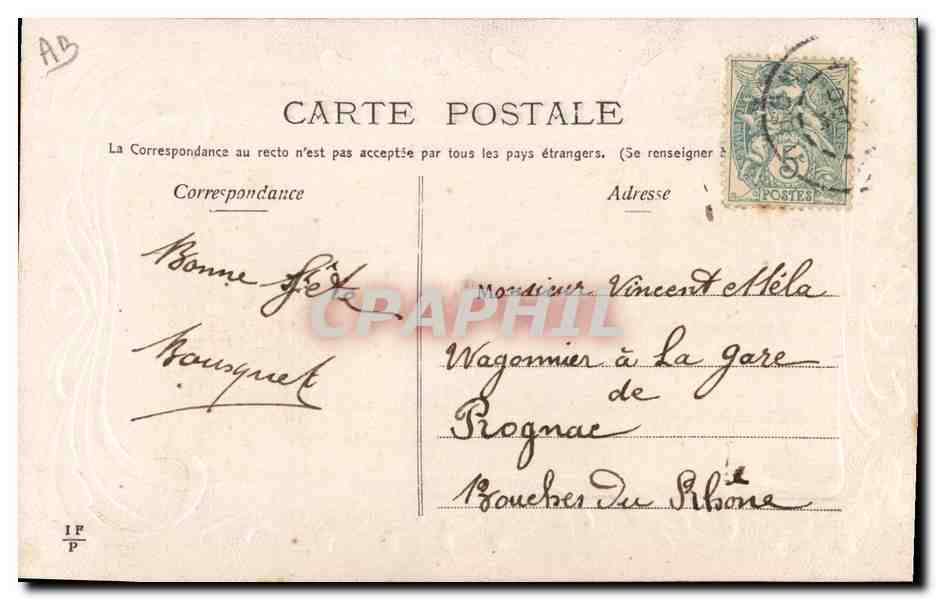 AB
CARTE POSTALE
La Correspondance au recto n'est pas acceptée par tous les pays étrangers. (Se renseigner
Correspondance
Adresse
5
POSTES
Bonne fête
Bousquet
Monsieur Vincent Méla
Wagonnier à La gare
de
Rognac
Bouches du Rhône
CPAPHIL
IF
P